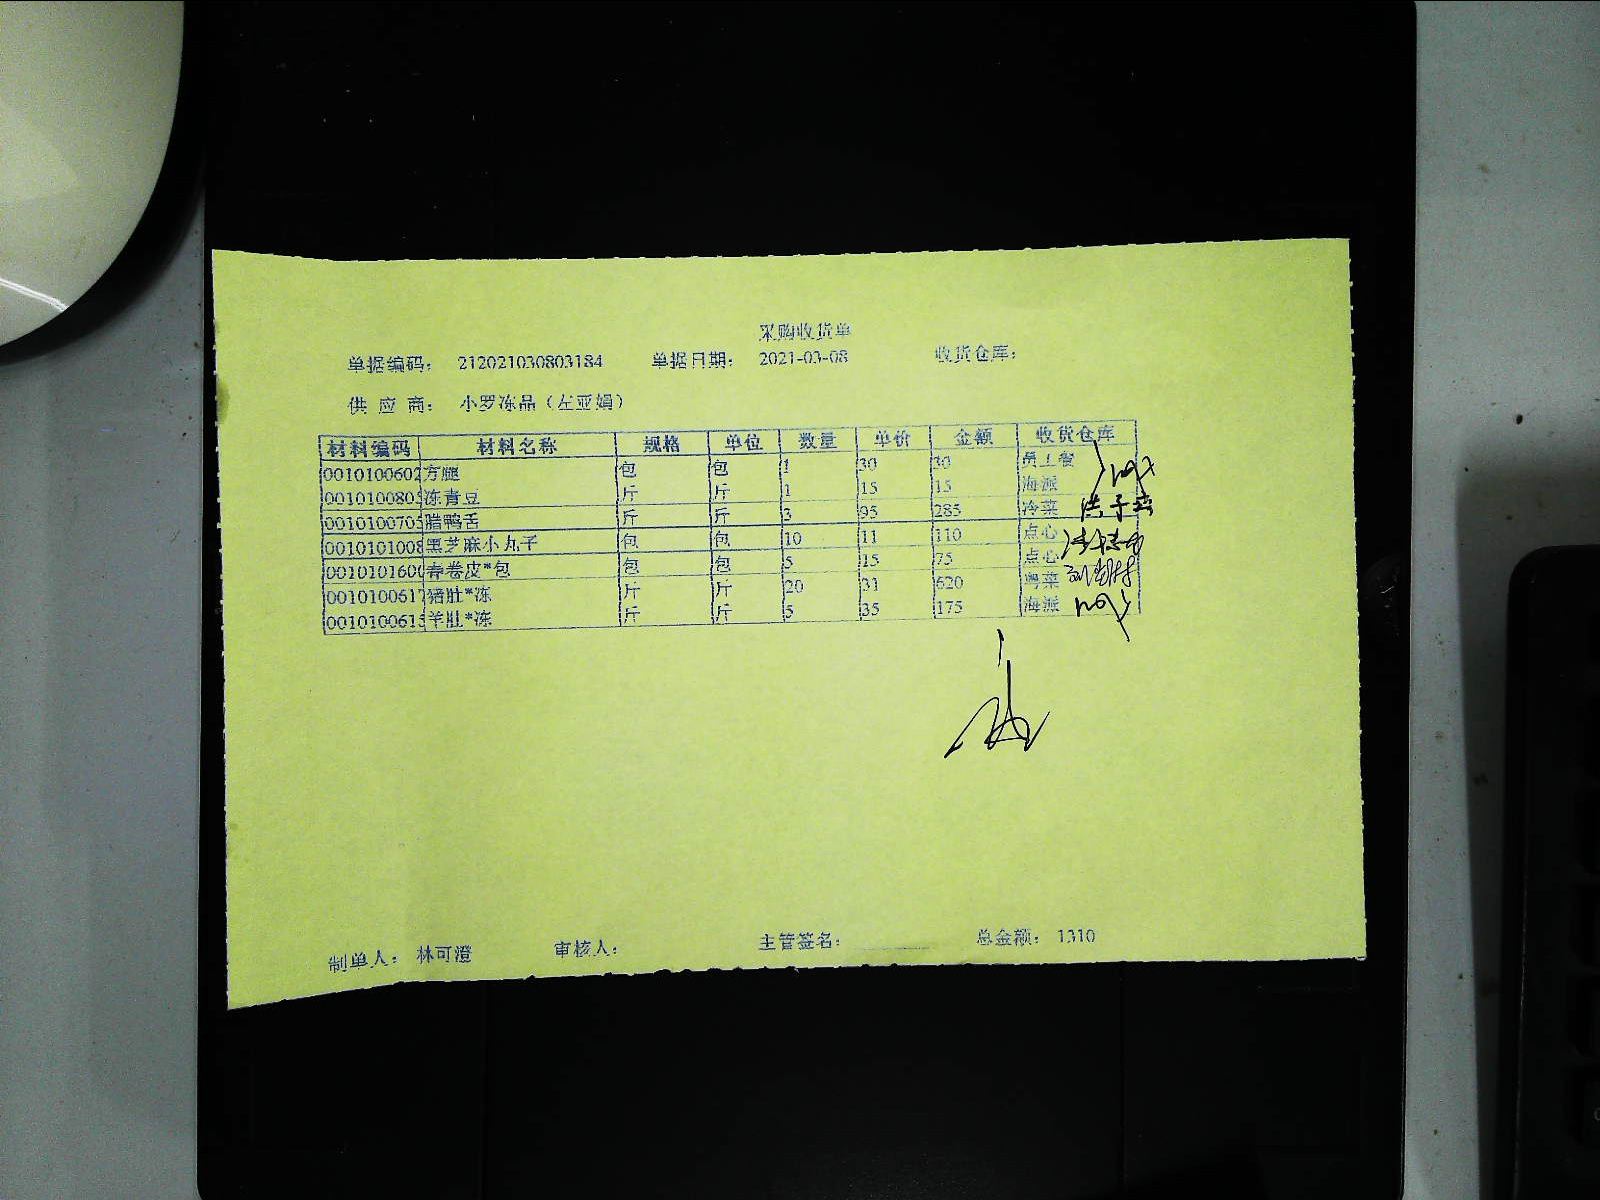 采购收货单
单据编码： 212021030803184 单据日期： 2021-03-08 收货仓库：
供 应 商： 小罗冻品（左亚娟）
材料编码 材料名称 规格 单位 数量 单价 金额 收货仓库
0010100602 方腿 包 包 1 30 30 员工餐
001010080 冻青豆 斤 斤 1 15 15 海派
001010070 腊鸭舌 斤 斤 3 95 285 冷菜
001010100 黑芝麻小丸子 包 包 10 11 110 点心
001010160 春卷皮*包 包 包 5 15 75 点心
001010061 猪肚*冻 斤 斤 20 31 620 粤菜
001010061 羊肚*冻 斤 斤 5 35 175 海派
制单人： 林可澄 审核人： 主管签名： 总金额： 1310